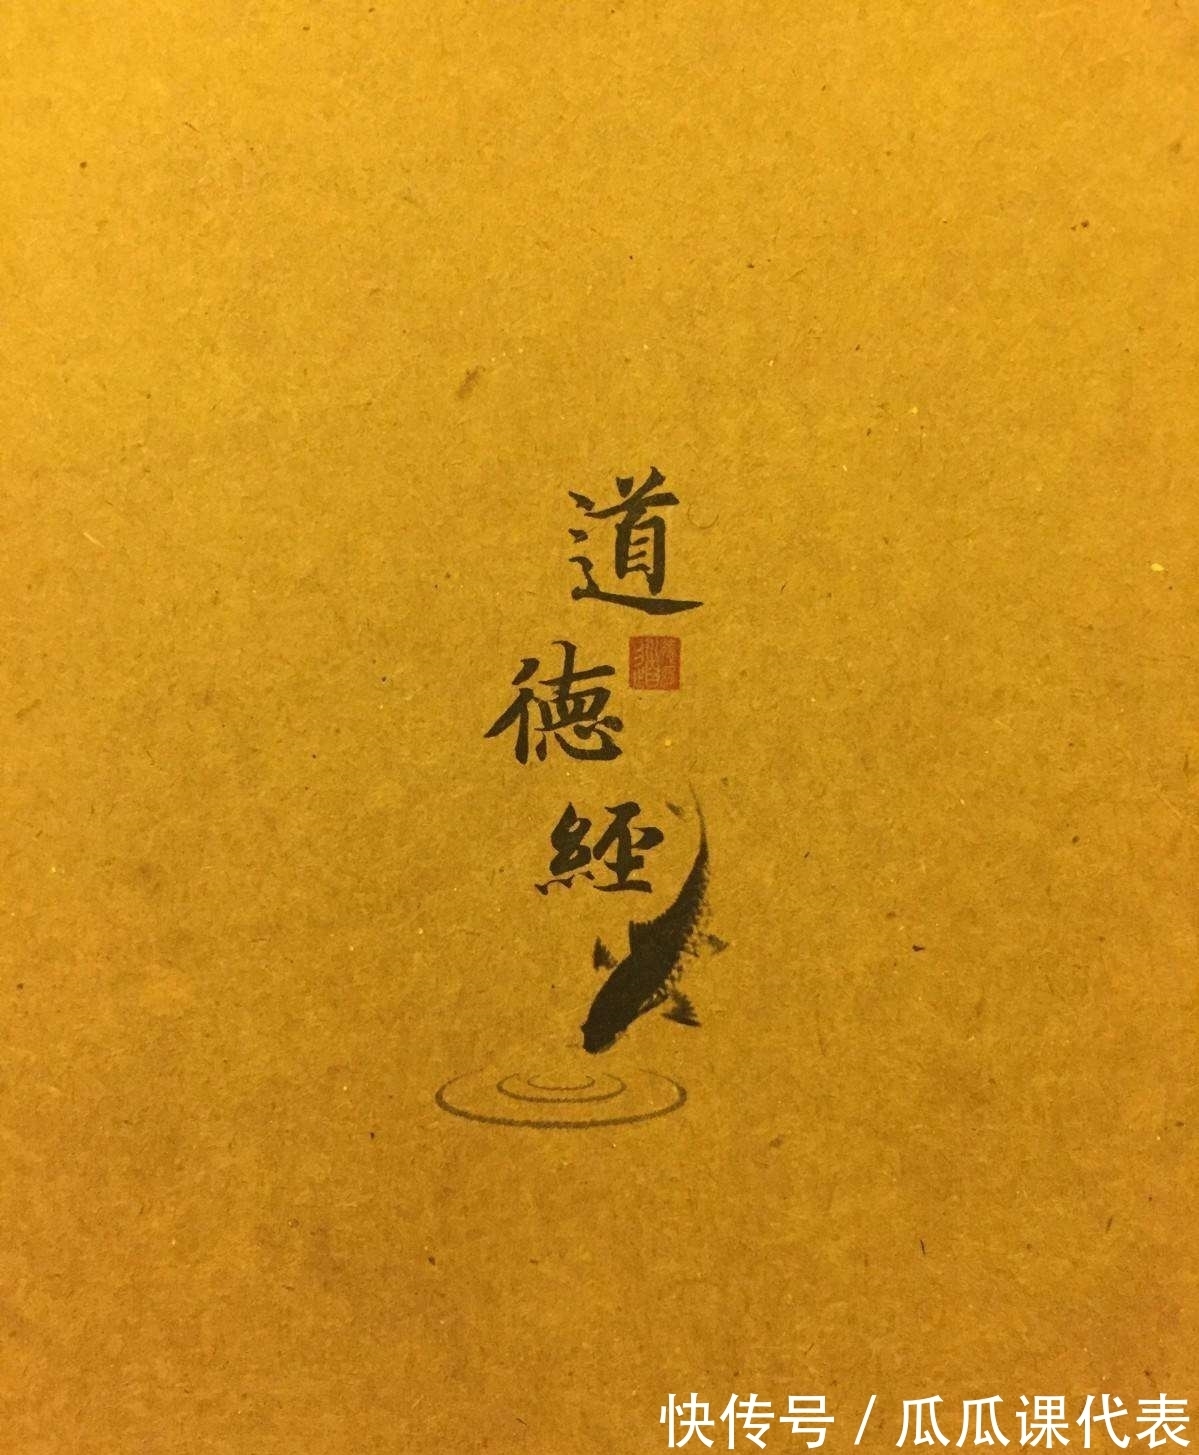 道
德
經
快传号 / 瓜瓜课代表